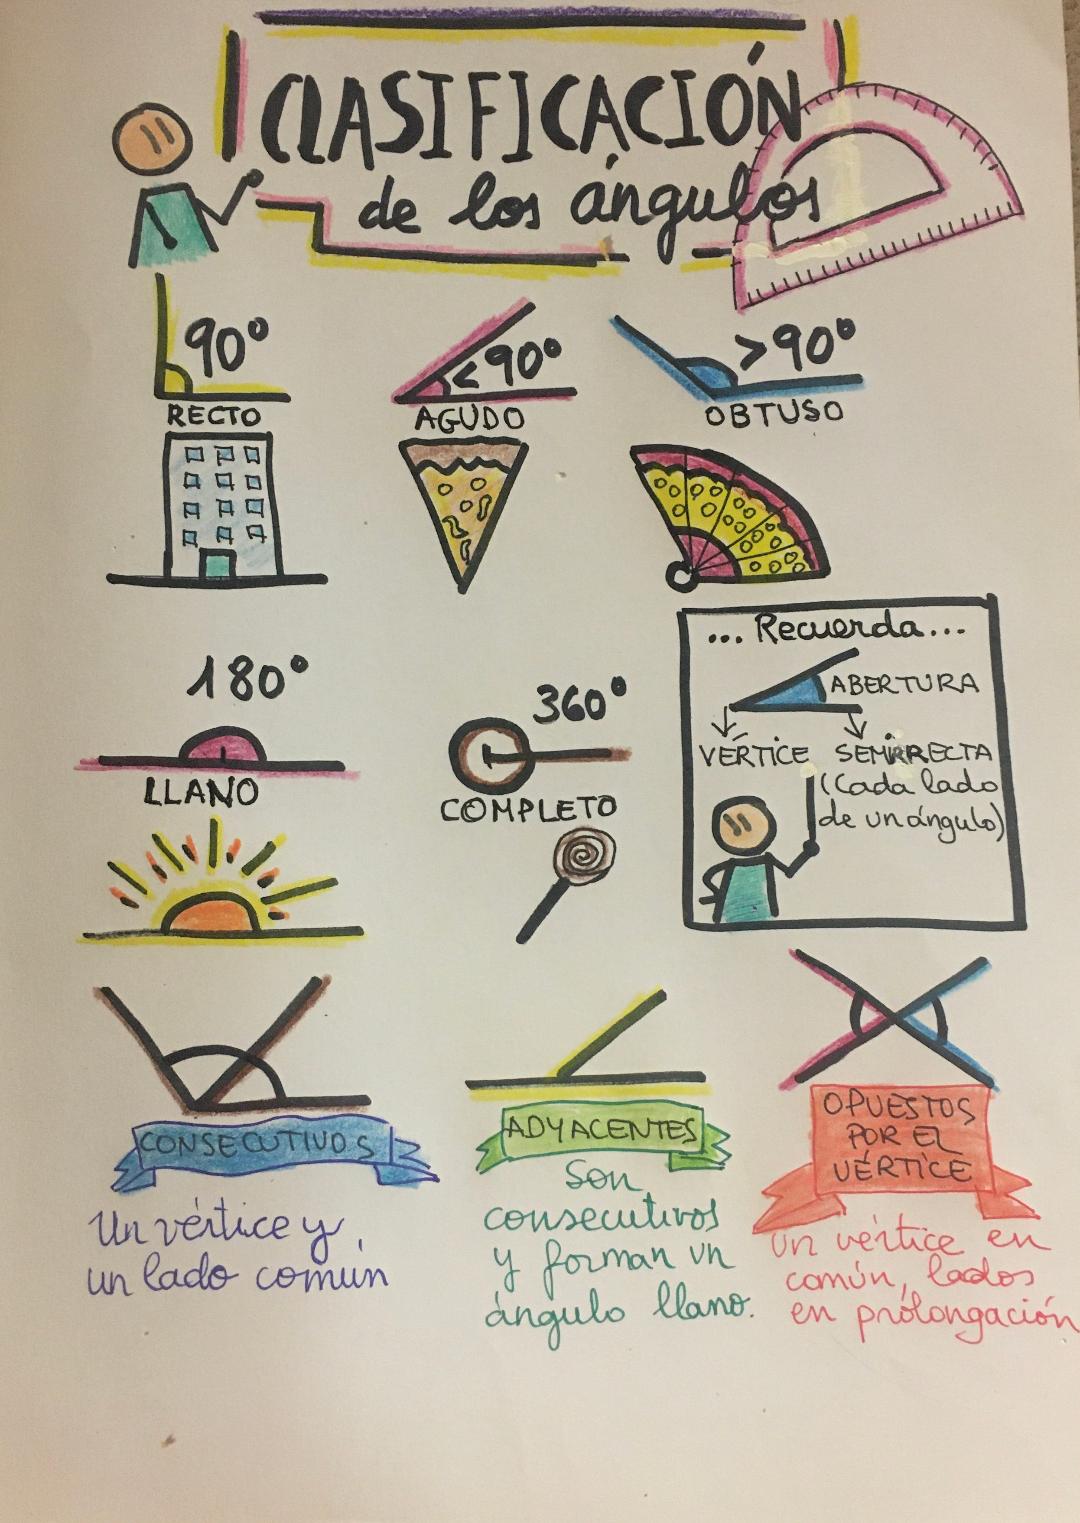 CLASIFICACIÓN
de los ángulos
90º
<90º
>90º
RECTO
AGUDO
OBTUSO
180º
LLANO
360º
COMPLETO
... Recuerda...
ABERTURA
VÉRTICE SEMIRRECTA
(Cada lado
de un ángulo)
CONSECUTIVOS
Un vértice y
un lado común
ADYACENTES
Son
consecutivos
y forman un
ángulo llano.
OPUESTOS
POR EL
VÉRTICE
un vértice en
común, lados
en prolongación